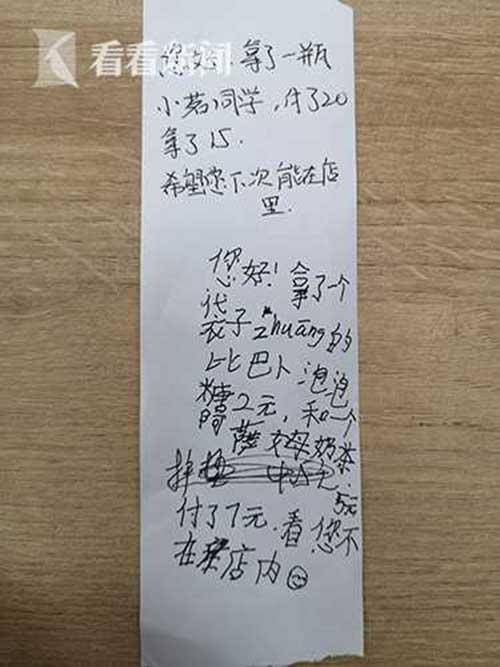 看看新闻
您好,拿了一瓶
小茗同学,付了20
拿了15.
希望您下次能在店
里.
您好!拿了一个
袋子zhuāng的
比巴卜泡泡
糖2元,和一个
奶茶
5元
付了7元.看您不
在店内